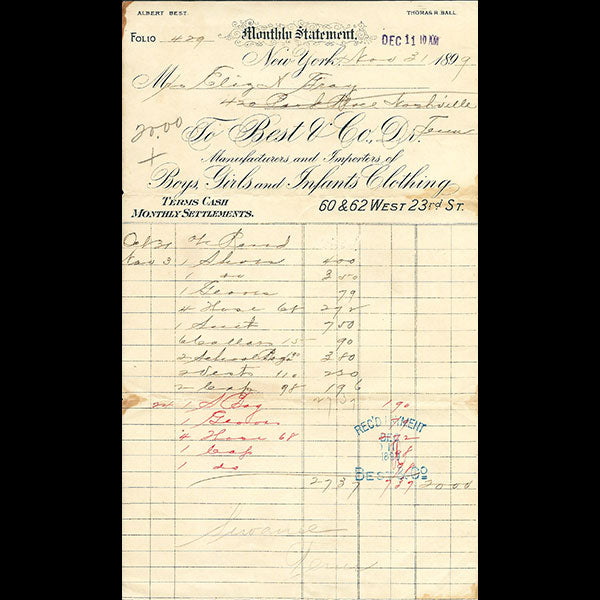 ALBERT BEST.
THOMAS R. BALL.
FOLIO 429
Monthly Statement.
DEC 11 10 AM
New York, Nov 31 1899
Mrs Eliz N
Nashville
20.00
To Best & Co., Dr.
Tenn
Manufacturers and Importers of
Boys, Girls and Infants Clothing
TERMS CASH
MONTHLY SETTLEMENTS.
60 & 62 WEST 23rd ST.
Oct 31
Nov 3 1 Shoes 400
1 do 350
1 Gloves 79
4 Hose 68 272
1 Suit 750
6 Collars 15 90
2 380
2 Vests 110 220
2 Cap 98 196
24 1 190
1 Gloves
4 Hose 68
1 Cap 98
1 do
REC'D PAYMENT
DEC
BEST & CO
2737 737 2000
Sewanee
Tenn